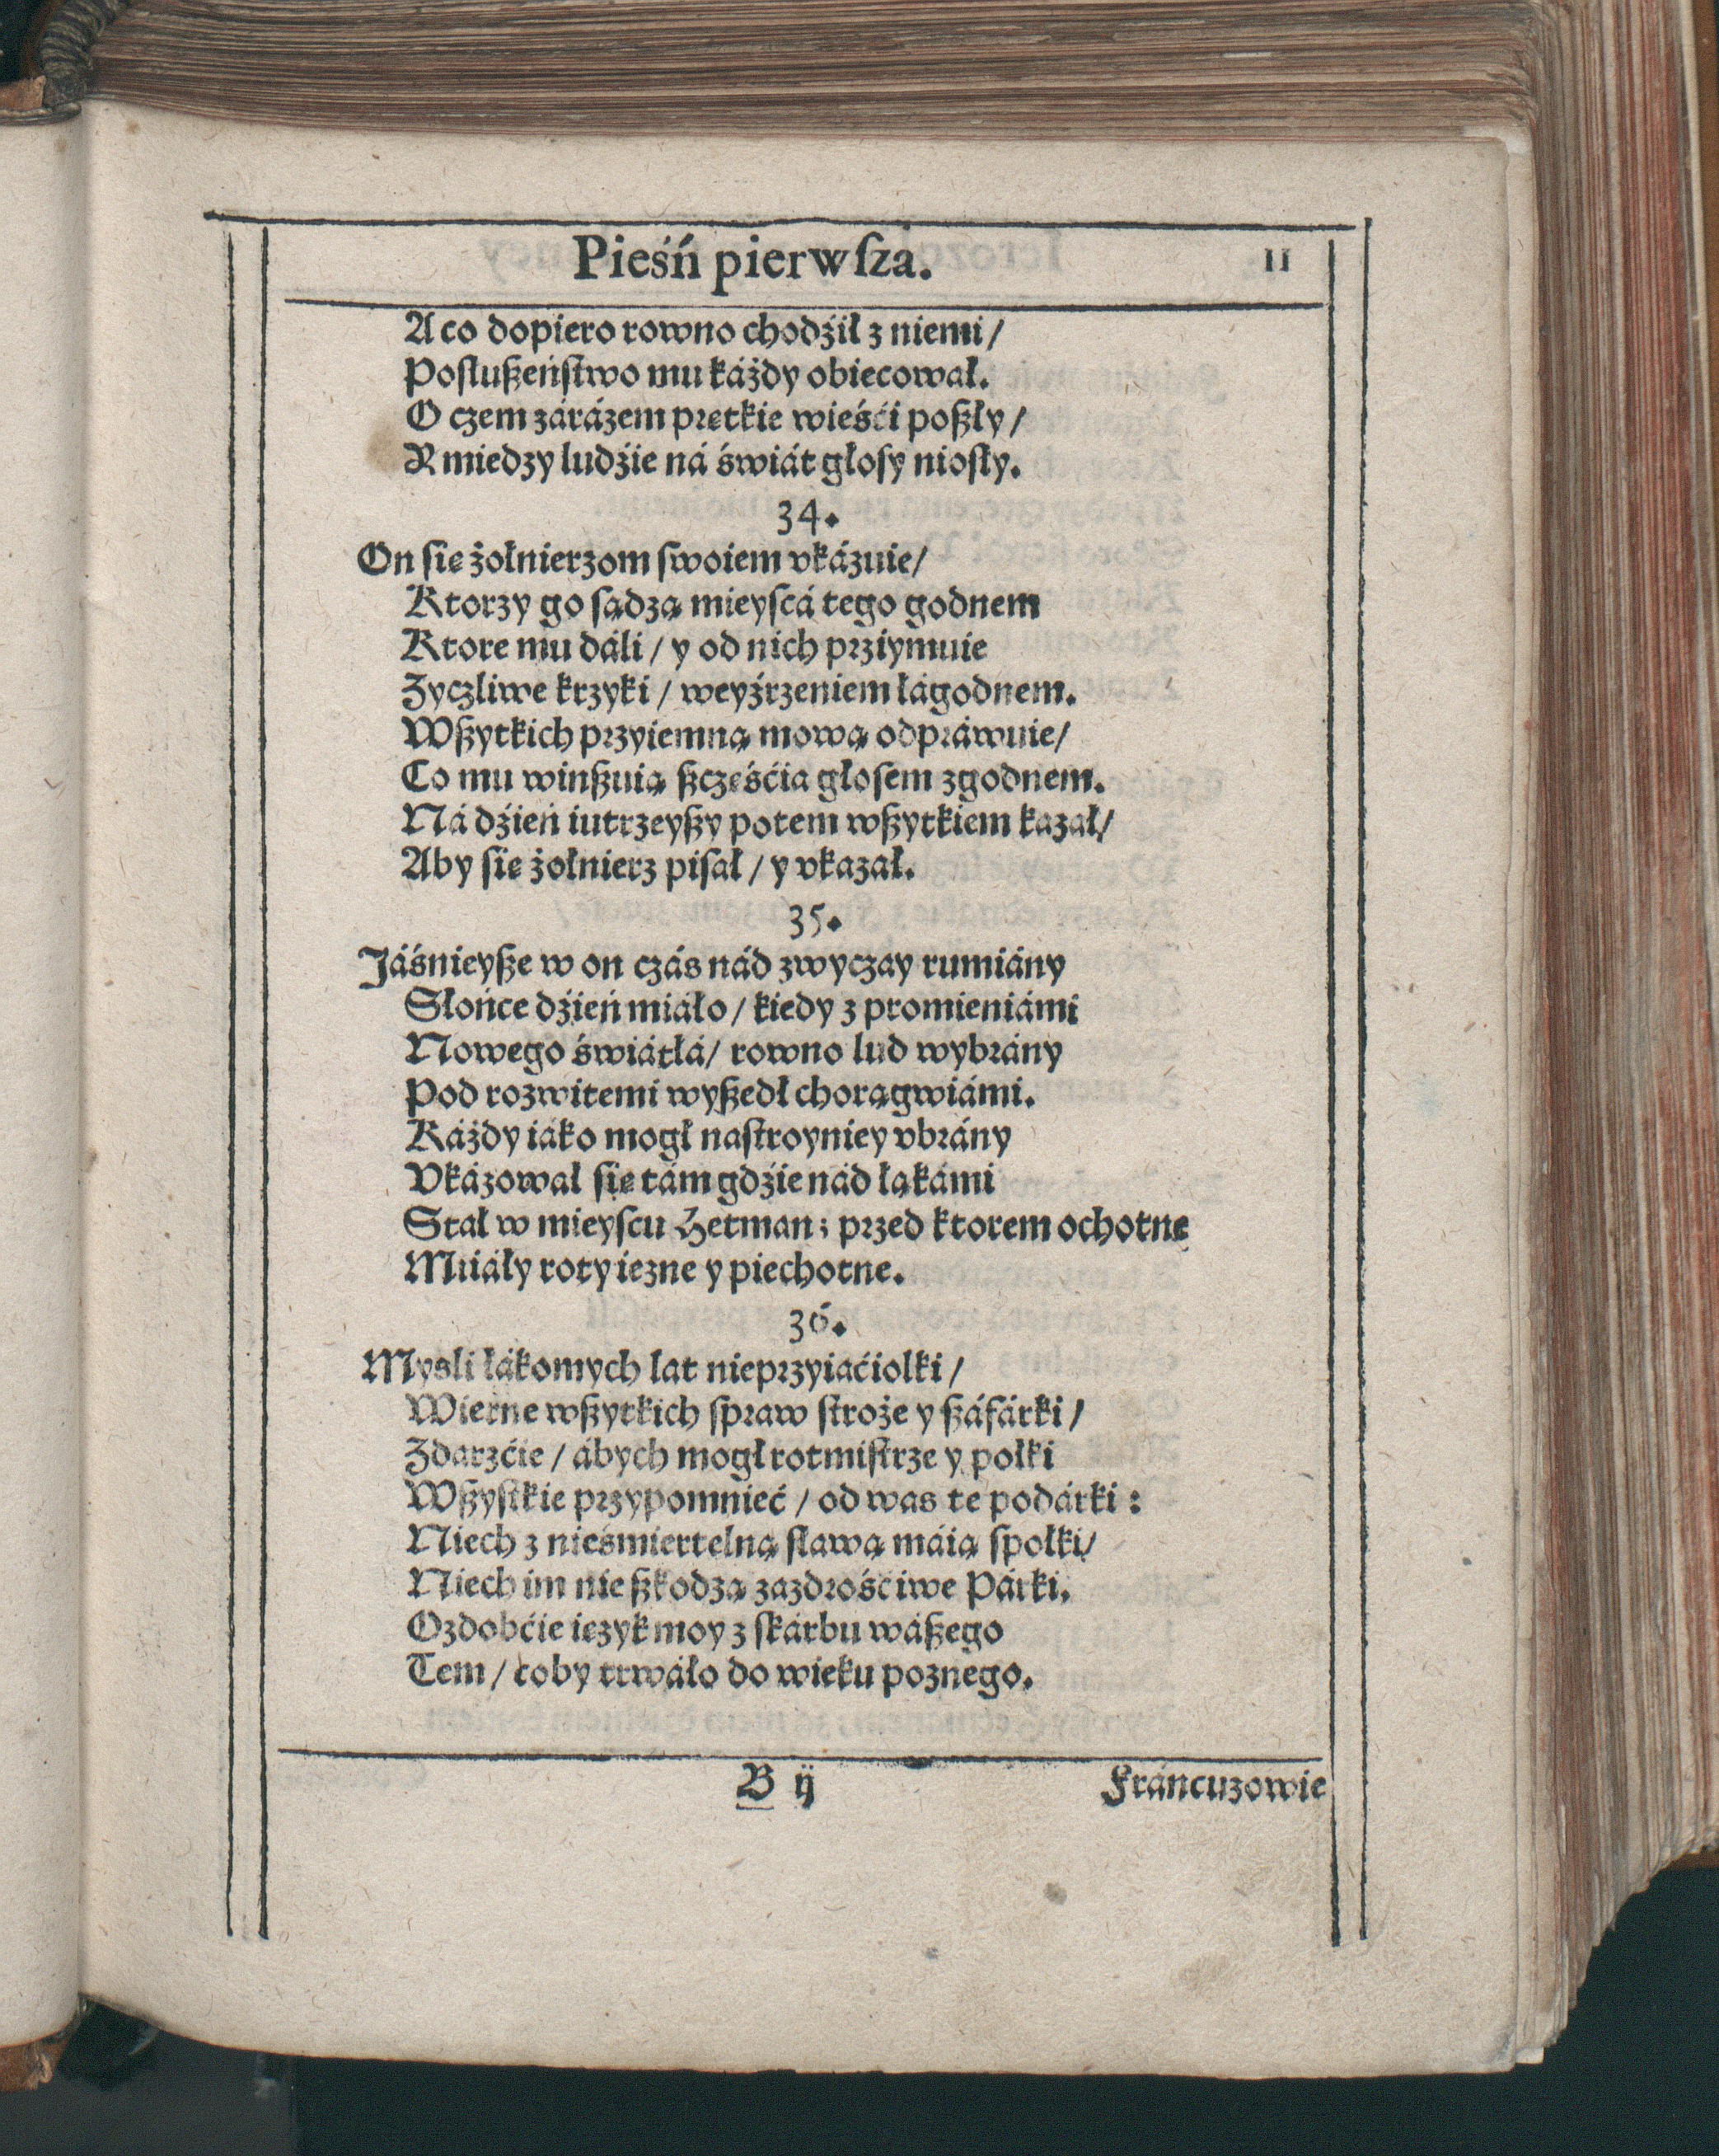 Pieśń pierwſza.
11
A co dopiero rowno chodźił z niemi/
Poſlußeńſtwo mu káżdy obiecował.
O czem zárázem prętkie wieśći poßły/
R miedzy ludźie ná świát głoſy nioſły.
34.
On ſię żołnierzom ſwoiem vkázuie/
Ktorzy go ſądzą mieyſcá tego godnem
Ktore mu dáli/ y od nich prziymuie
Zyczliwe krzyki/ weyźrzeniem łágodnem.
Wßytkich przyiemną mową odpráwuie/
Co mu winßuią ßczęśćia głoſem zgodnem.
Ná dźień iutrzeyßy potem wßytkiem kazał/
Aby ſię żołnierz piſał/ y vkazał.
35.
Jáśnieyße w on czás nád zwyczay rumiány
Słońce dźień miáło/ kiedy z promieniámi
Nowego świátłá/ rowno lud wybrány
Pod rozwitemi wyßedł chorągwiámi.
Káżdy iáko mogł naſtroyniey vbrány
Vkázował ſię tám gdźie nád łąkámi
Stał w mieyſcu Hetman; przed ktorem ochotnę
Miiáły roty iezne y piechotne.
36.
Myśli łákomych lat nieprzyiaćiolki/
Wierne wßytkich ſpraw ſtroże y ßáfárki/
Zdarzćie/ ábych mogł rotmiſtrze y połki
Wßyſtkie przypomnieć/ od was te podárki:
Niech z nieśmiertelną ſlawą máią ſpołki/
Niech im nie ßkodzą zazdrośćiwe Párki.
Ozdobćie ięzyk moy z ſkárbu wáßego
Tem/ coby trwáło do wieku poznego.
B ij
Fráncuzowie